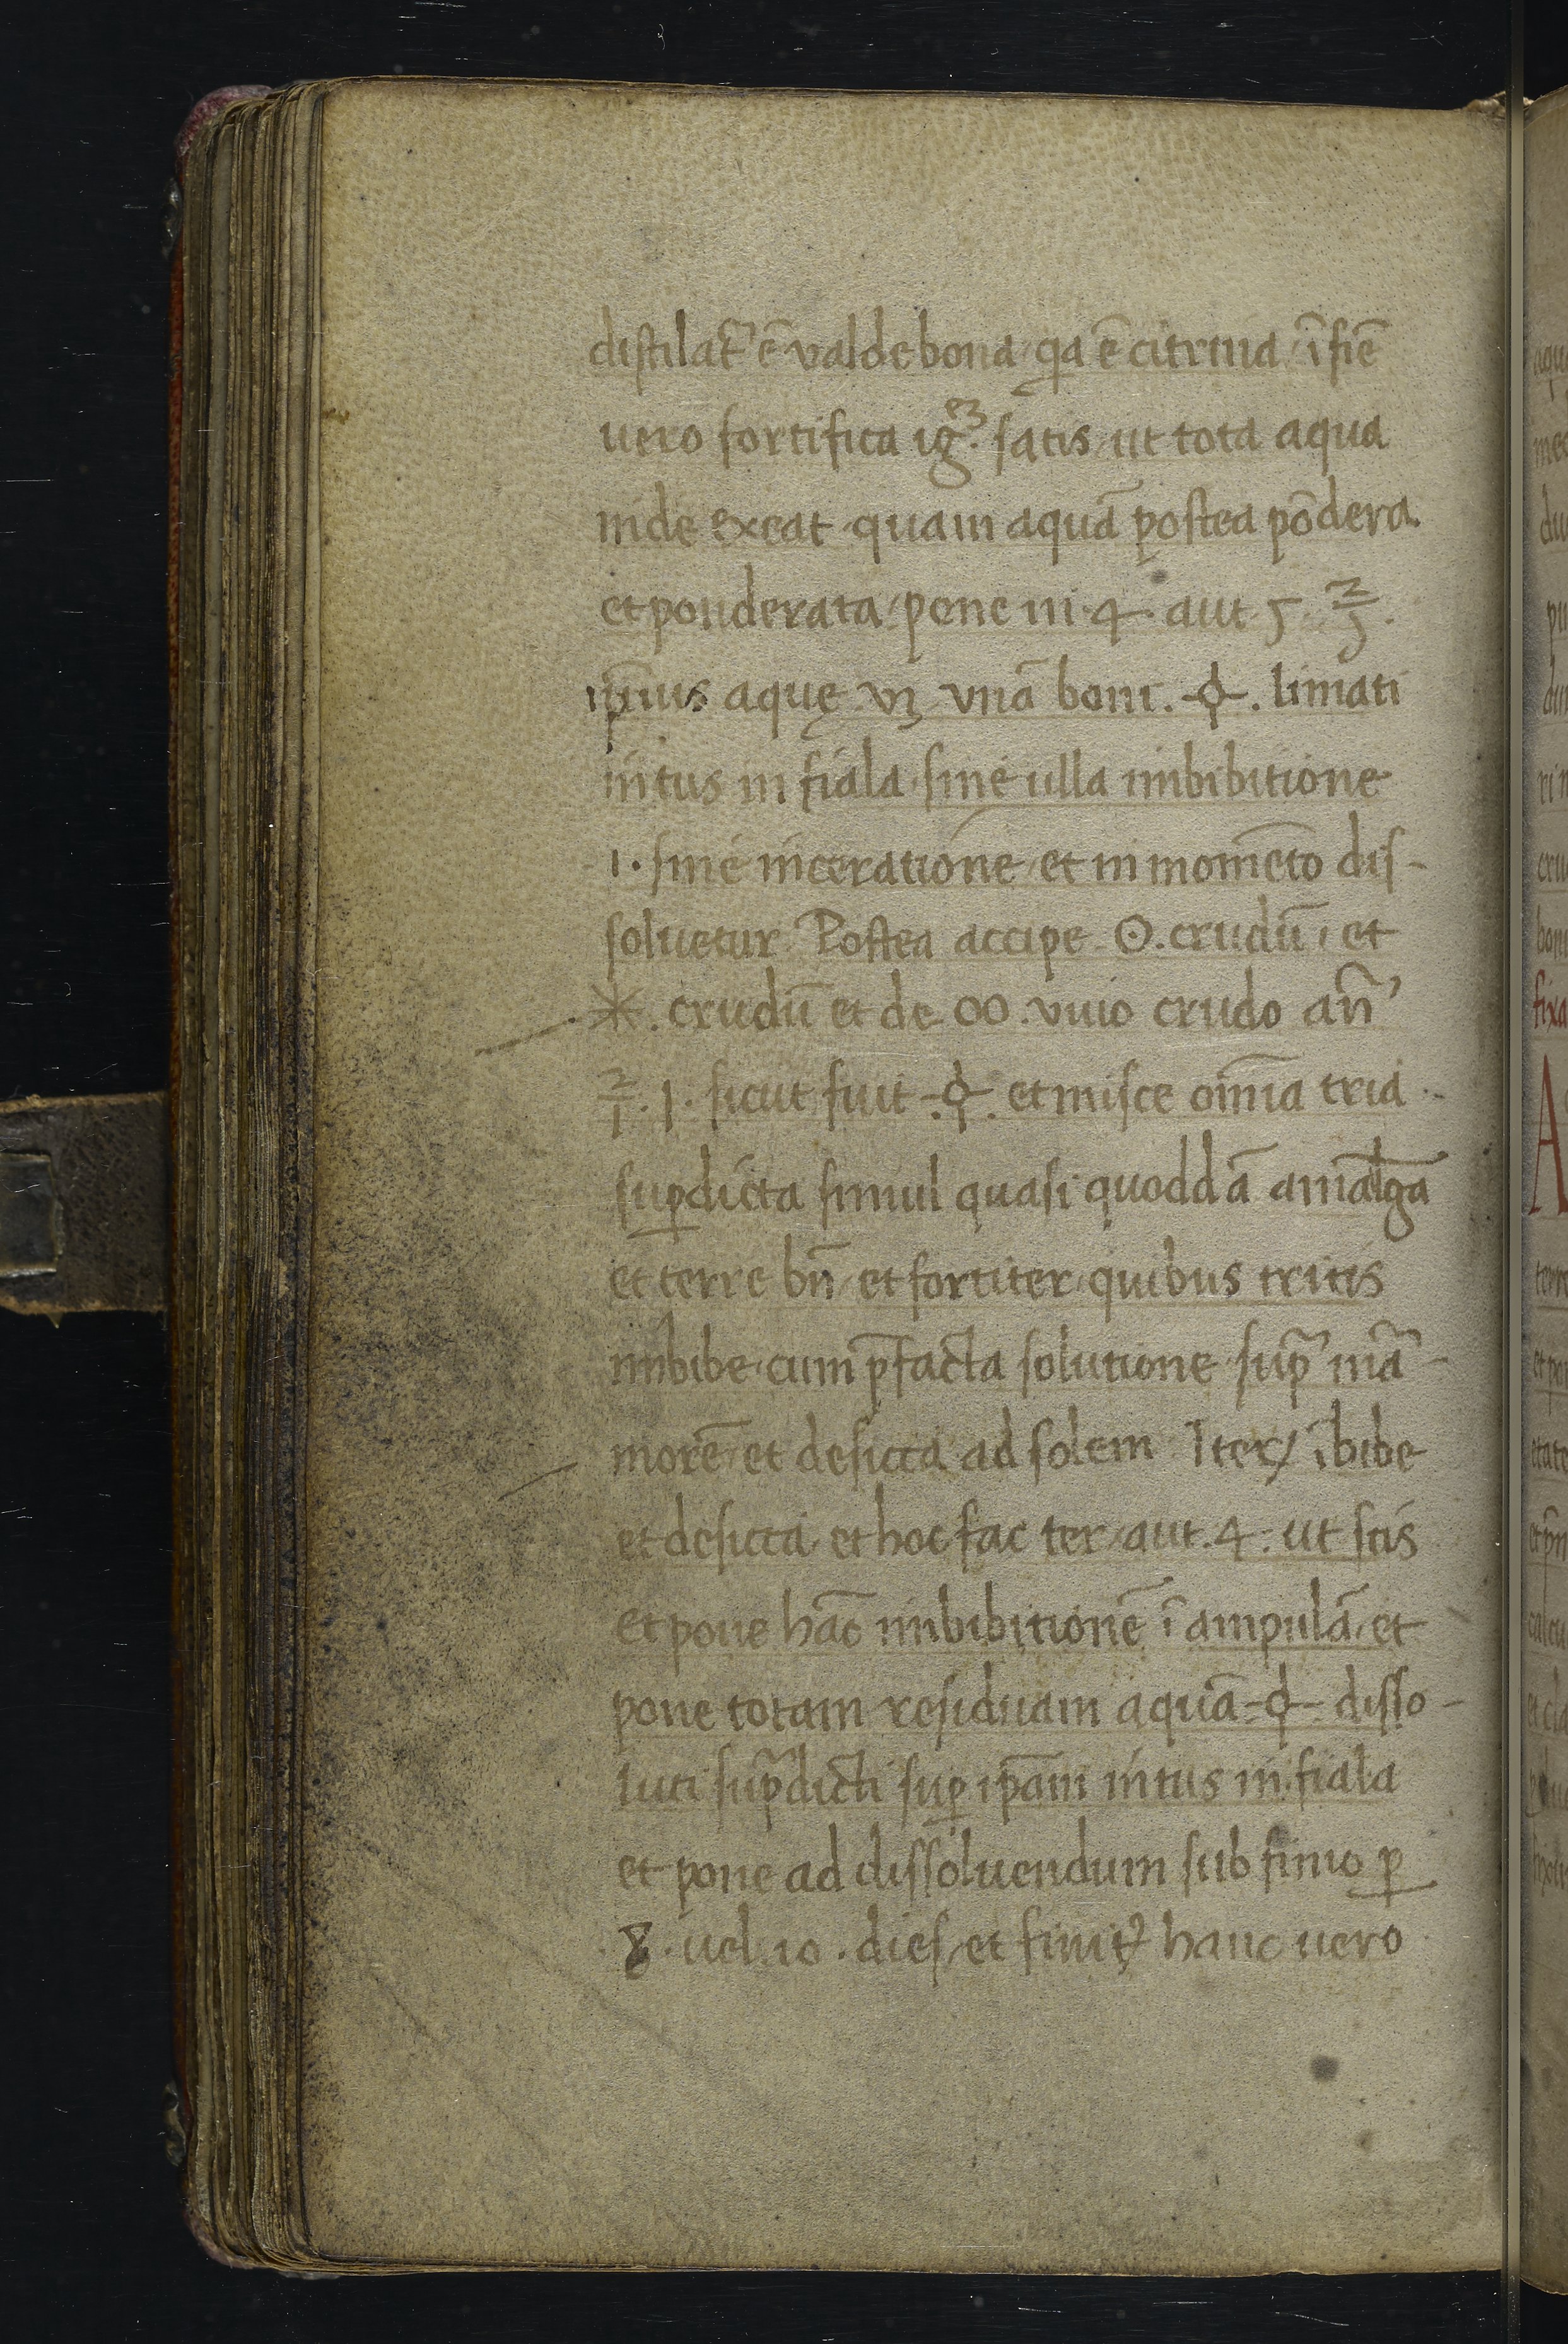 distilat᷑ ē valde bona qa ē citrina / ī fiē
uero fortifica ig. satis / ut tota aqua
inde exeat quam aquā postea pōdera.
et ponderata / pone in .4. aut 5 ℥.
ip̄ius aquę vꝫ vnā boni . limati
intus in fiala sine ulla imbibitione
.i. sine inceratione / et in momēto dis-
soluetur Postea accipe ʘ. crudū, et
*. crudū et de oo. viuo crudo an̄
. 1. sicut fuit et misce om̄ia tria
suꝑdicta simul quasi quoddā amalga
et terre bn̄ / et fortiter / quibus tritis
imbibe / cum p̄facta solutione sup̄ mā-
morē / et desicca ad solem Iteꝝ ībibe
et desicca / et hoc fac ter / aut .4. ut scis
et pone hāc imbibitionē ī ampulā / et
pone totam residuam aquā disso-
luti sup̄dicti suꝑ ip̄am intus in fiala
et pone ad dissoluendum sub fimo ꝑ
8. uel .10. dies / et finit᷑ hanc uero